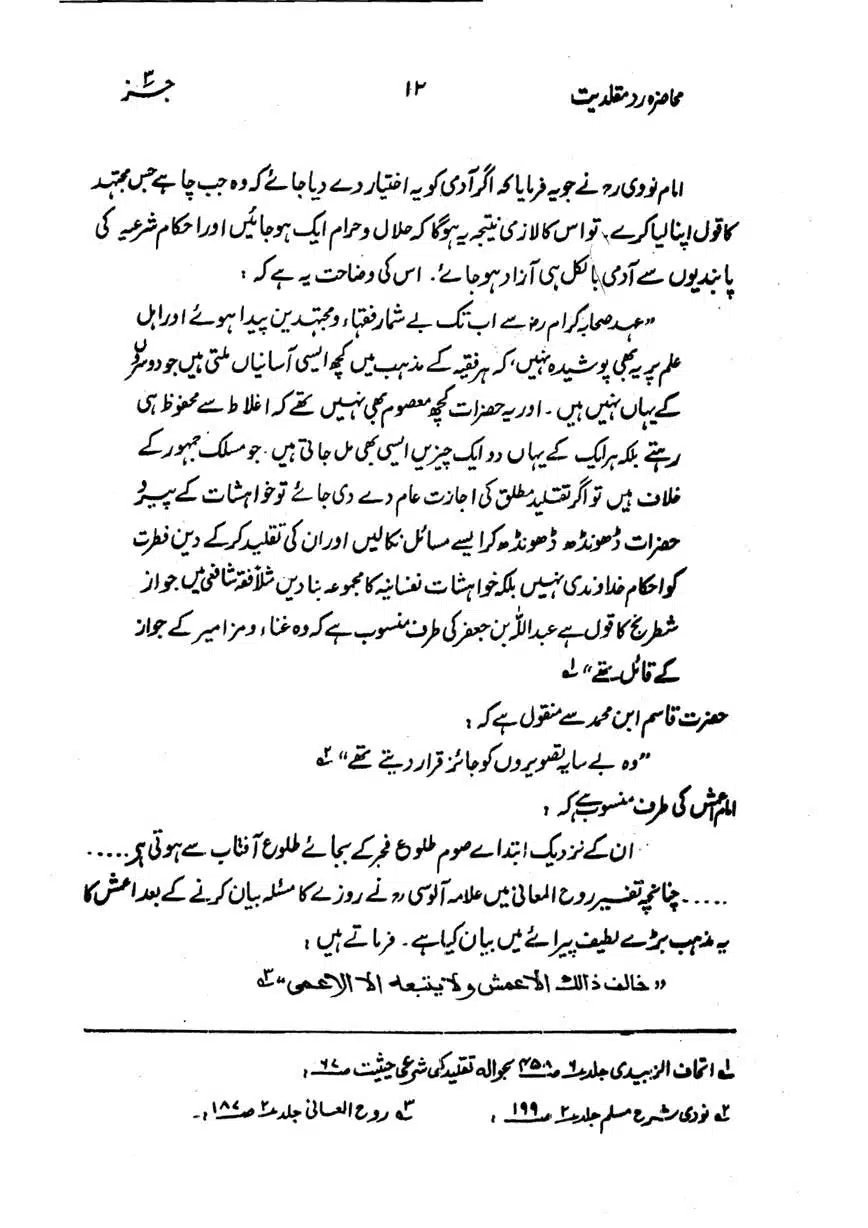 محاضرہ رد مقلدیت ۱۲ جز ۳
امام نووی رح نے جو یہ فرمایا کہ اگر آدمی کو یہ اختیار دے دیا جائے کہ وہ جب چاہے جس مجتہد
کا قول اپنا لیا کرے، تو اس کا لازمی نتیجہ یہ ہوگا کہ حلال و حرام ایک ہو جائیں اور احکام شرعیہ کی
پابندیوں سے آدمی بالکل ہی آزاد ہو جائے۔ اس کی وضاحت یہ ہے کہ :
”عہد صحابہ کرام رض سے اب تک بے شمار فقہاء و مجتہدین پیدا ہوئے اور اہل
علم پر یہ بھی پوشیدہ نہیں، کہ ہر فقیہ کے مذہب میں کچھ ایسی آسانیاں ملتی ہیں جو دوسروں
کے یہاں نہیں ہیں ۔ اور یہ حضرات کچھ معصوم بھی نہیں تھے کہ اغلاط سے محفوظ ہی
رہتے بلکہ ہر ایک کے یہاں دو ایک چیزیں ایسی بھی مل جاتی ہیں۔ جو مسلک جمہور کے
خلاف ہیں تو اگر تقلید مطلق کی اجازت عام دے دی جائے تو خواہشات کے پیرو
حضرات ڈھونڈھ ڈھونڈھ کر ایسے مسائل نکالیں اور ان کی تقلید کر کے دین فطرت
کو احکام خداوندی نہیں بلکہ خواہشات نفسانیہ کا مجموعہ بنا دیں مثلاً فقہ شافعی میں جواز
شطرنج کا قول ہے عبداللہ بن جعفر کی طرف منسوب ہے کہ وہ غناء و مزامیر کے جواز
کے قائل تھے“ ۱؎
حضرت قاسم ابن محمد سے منقول ہے کہ :
”وہ بے سایہ تصویروں کو جائز قرار دیتے تھے“ ۲؎
امام اعمش کی طرف منسوب ہے کہ :
ان کے نزدیک ابتداے صوم طلوع فجر کے بجائے طلوع آفتاب سے ہوتی ہے .....
..... چنانچہ تفسیر روح المعانی میں علامہ آلوسی رح نے روزے کا مسئلہ بیان کرنے کے بعد اعمش کا
یہ مذہب بڑے لطیف پیرائے میں بیان کیا ہے۔ فرماتے ہیں :
”خالف ذالك الاعمش ولا يتبعه الا الاعمى“ ۳؎
۱؎ اتحاف الزبیدی جلد ۶ صـ ۴۵۸ بحوالہ تقلید کی شرعی حیثیت صـ ۶۷ :
۲؎ نودی شرح مسلم جلد ۲ صـ ۱۹۹ : ۳؎ روح المعانی جلد ۲ صـ ۱۸۷ :۔